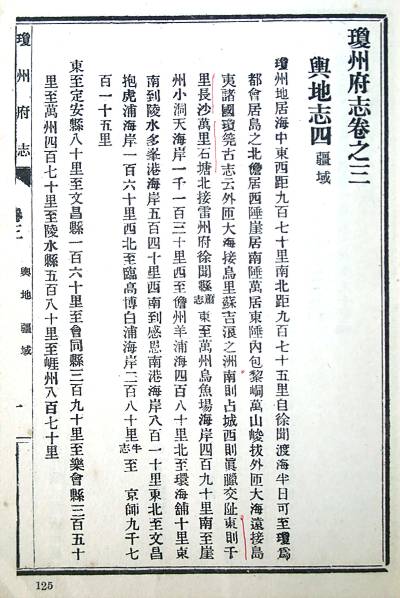 瓊州府志卷之三
輿地志四 疆域
瓊州地居海中東西距九百七十里南北距九百七十五里自徐聞渡海半日可至瓊爲
都會居島之北儋居西陲崖居南陲萬居東陲內包黎峒萬山峻拔外匝大海遠接島
夷諸國瓊筦古志云外匝大海接烏里蘇吉浪之洲南則占城西則眞臘交趾東則千
里長沙萬里石塘北接雷州府徐聞縣蕭志東至萬州烏魚場海岸四百九十里南至崖
州小洞天海岸一千一百三十里西至儋州羊浦海四百八十里北至環海舖十里東
南到陵水多峯港海岸五百四十里西南到感恩南港海岸八百一十里東北至文昌
抱虎浦海岸一百六十里西北至臨高博白浦海岸二百八十里牛志至 京師九千七
百一十五里
東至定安縣八十里至文昌縣一百六十里至會同縣二百九十里至樂會縣三百五十
里至萬州四百七十里至陵水縣五百八十里至崖州八百七十里
瓊州府志
卷三
輿地 疆域
一
125